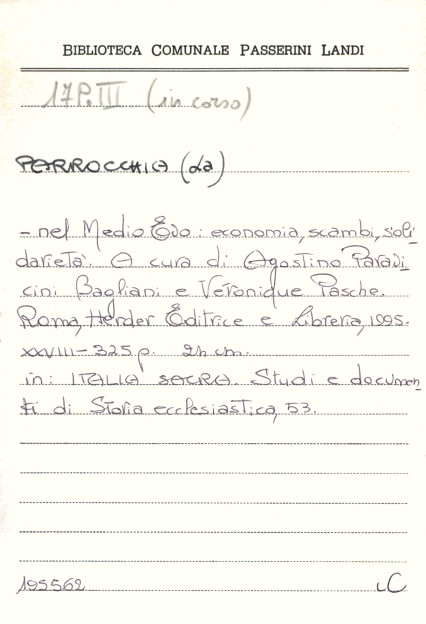 BIBLIOTECA COMUNALE PASSERINI LANDI
17P.III (in corso)
PARROCCHIA (La)
- nel Medio Evo: economia, scambi, soli-
darietà. A cura di Agostino Paravi
cini Bagliani e Véronique Pasche.
Roma, Herder Editrice e Libreria, 1995.
XXVIII-325 p. 24 cm.
in: ITALIA SACRA. Studi e documen
ti di Storia ecclesiastica, 53.
195562